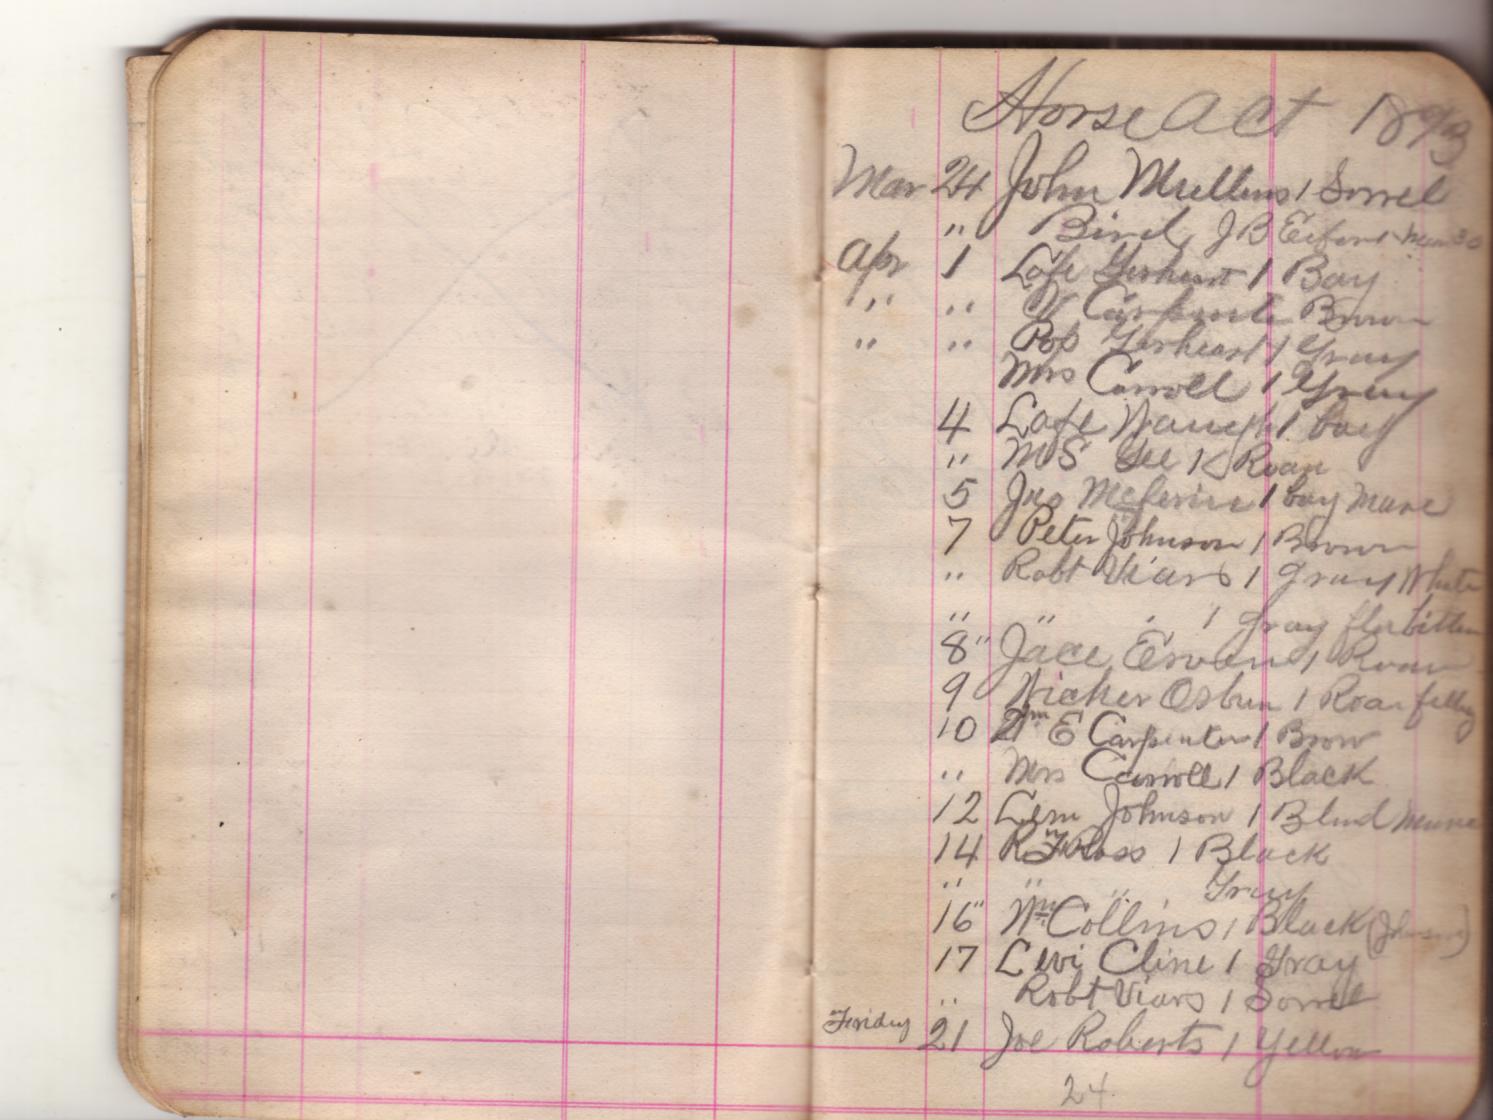 Horse Act 1893
Mar 24 John Mullens 1 Sorrel
" Bird, J B 1 Mar 30
Apr 1 Lafe Gerheart 1 Bay
" " W Carpenter Brown
" " Pop Gerheart 1 Gray
Mrs Carroll 1 Gray
4 Lafe Waugh 1 bay
" M S Gee 1 Roan
5 Jno 1 bay Mare
7 Peter Johnson 1 Brown
" Robt Viars 1 Gray White
" " " 1 Gray fleabitten
8 " Jace Ervan 1 Roan
9 Wicher Osbun 1 Roan filley
10 Wm E Carpenter 1 Brow
" Mrs Carroll 1 Black
12 Lem Johnson 1 Blind Mare
14 R F Ross 1 Black
" " " Gray
16 " Wm Collins 1 Black (Johnson)
17 Levi Cline 1 Gray
" Robt Viars 1 Sorrel
Friday 21 Joe Roberts 1 Yellow
24